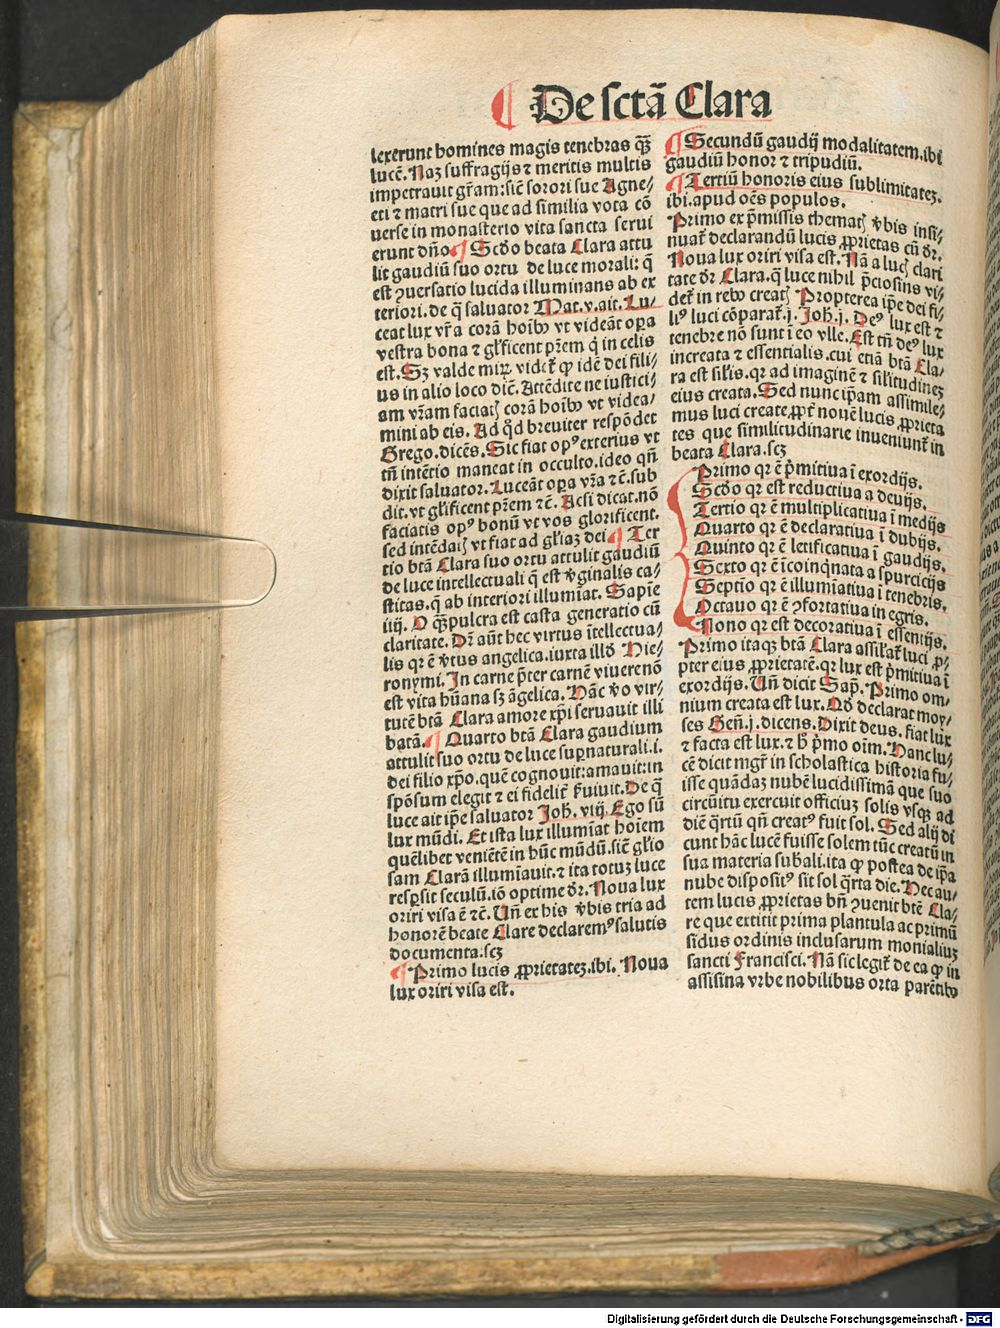 De sctā Clara
lexerunt homines magis tenebras q̄ꝫ
lucē. Naꝫ suffragijs ⁊ meritis multis
impetrauit gr̄am: sic̄ sorori sue Agne⸗
eti ⁊ matri sue que ad similia vota cō
uerse in monasterio vita sancta serui
erunt dn̄o. ¶ Scd̄o beata Clara attu
lit gaudiū suo ortu de luce morali: q̄
est ꝯuersatio lucida illuminans ab ex
teriori. de q̄ saluator Mat. v. ait. Lu⸗
ceat lux vr̄a corā hoībꝰ vt videāt oꝑa
vestra bona ⁊ gl̄ificent pr̄em q̄ in celis
est. Sꝫ valde miꝝ videt̄ ꝙ idē dei fili⸗
us in alio loco dic̄. Attēdite ne iustici⸗
am vr̄am faciatꝭ corā hoībꝰ vt videa⸗
mini ab eis. Ad q̄d breuiter respōdet
Grego. dicēs. Sic fiat opꝰ exterius vt
tn̄ intētio maneat in occulto. ideo qn̄
dixit saluator. Luceāt oꝑa vr̄a ⁊c̄. sub
dit. vt gl̄ificent pr̄em ⁊c̄. Acsi dicat. nō
faciatis opꝰ bonū vt vos glorificent.
sed intēdatꝭ vt fiat ad gl̄iaꝫ dei ¶ Ter
tio btā Clara suo ortu attulit gaudiū
de luce intellectuali q̄ est v̄ginalis ca⸗
stitas. q̄ ab interiori illumīat. Sapīe
iiij. O q̄ꝫpulcra est casta generatio cū
claritate. Dr̄ aūt hec virtus ītellectua⸗
lis qr ē v̄tus angelica. iuxta illd̄ Hie⸗
ronymi. In carne p̄ter carnē viuere nō
est vita hūana sꝫ āgelica. Hāc v̄o vir⸗
tutē btā Clara amore xp̄i seruauit illi
batā. ¶ Quarto btā Clara gaudium
attulit suo ortu de luce suꝑnaturali. i.
dei filio xp̄o. quē cognouit: amauit: in
spōsum elegit ⁊ ei fidelit̄ s̄uiuit. De q̄
luce ait ip̄e saluator Joh̄. viij. Ego sū
lux mūdi. Et ista lux illumīat hoīem
quēlibet veniētē in hūc mūdū. sic̄ gl̄io
sam Clarā illumīauit. ⁊ ita totuꝫ luce
resꝑsit seculū. iō optime dr̄. Noua lux
oriri visa ē ⁊c̄. Un̄ ex his v̄bis tria ad
honorē beate Clare declaremꝰ salutis
documenta. scꝫ
¶ Primo lucis ꝓprietateꝫ. ibi. Noua
lux oriri visa est.
¶ Secundū gaudij modalitatem. ibi
gaudiū honor ⁊ tripudiū.
¶ Tertiū honoris eius sublimitateꝫ.
ibi. apud oēs populos.
Primo ex p̄missis thematꝭ v̄bis insi⸗
nuat̄ declarandū lucis ꝓprietas cū dr̄.
Noua lux oriri visa est. Nā a lucꝭ clari
tate dr̄ Clara. q̄ luce nihil p̄ciosiꝰ vi⸗
det̄ in rebꝰ creatꝭ Propterea ip̄e dei fi⸗
liꝰ luci cōparat̄. j. Joh̄. j. Deꝰ lux est ⁊
tenebre nō sunt ī eo vlle. Est tn̄ deꝰ lux
increata ⁊ essentialis. cui etiā btā Cla⸗
ra est sil̄is. qr ad imaginē ⁊ sil̄itudineꝫ
eius creata. Sed nunc ip̄am assimile⸗
mus luci create. ꝓpt̄ nouē lucis ꝓprieta
tes que similitudinarie inueniunt̄ in
beata Clara. scꝫ
Primo qr ē p̄mitiua ī exordijs.
Scd̄o qr est reductiua a deuijs.
Tertio qr ē multiplicatiua ī medijs
Quarto qr ē declaratiua ī dubijs.
Quinto qr ē letificatiua ī gaudijs.
Sexto qr ē īcoinq̄nata a spurcicijs
Septīo qr ē illumīatiua ī tenebris.
Octauo qr ē ꝯfortatiua in egris.
Nono qr est decoratiua ī essentijs.
Primo itaqꝫ btā Clara assil̄at̄ luci ꝓ⸗
pter eius ꝓprietatē. qr lux est p̄mitiua ī
exordijs. Un̄ dicit Sap̄. Primo om⸗
nium creata est lux. Qd̄ declarat moy⸗
ses Gen̄. j. dicens. Dixit deus. fiat lux
⁊ facta est lux. ⁊ h̄ p̄mo oīm. Hanc lu⸗
cē dicit mgr̄ in scholastica historia fu⸗
isse quādaꝫ nubē lucidissimā que suo
circūitu exercuit officiuꝫ solis vsqꝫ ad
diē q̄rtū qn̄ creatꝰ fuit sol. Sed alij di
cunt hāc lucē fuisse solem tūc creatū in
sua materia sub̄ali. ita ꝙ postea de ip̄a
nube dispositꝰ sit sol q̄rta die. Hec au⸗
tem lucis ꝓprietas bn̄ ꝯuenit btē Cla⸗
re que extitit prima plantula ac primū
sidus ordinis inclusarum monialiuꝫ
sancti Francisci. Nā sic legit̄ de ea ꝙ in
assisina vrbe nobilibus orta parētibꝰ
Digitalisierung gefördert durch die Deutsche Forschungsgemeinschaft - DFG